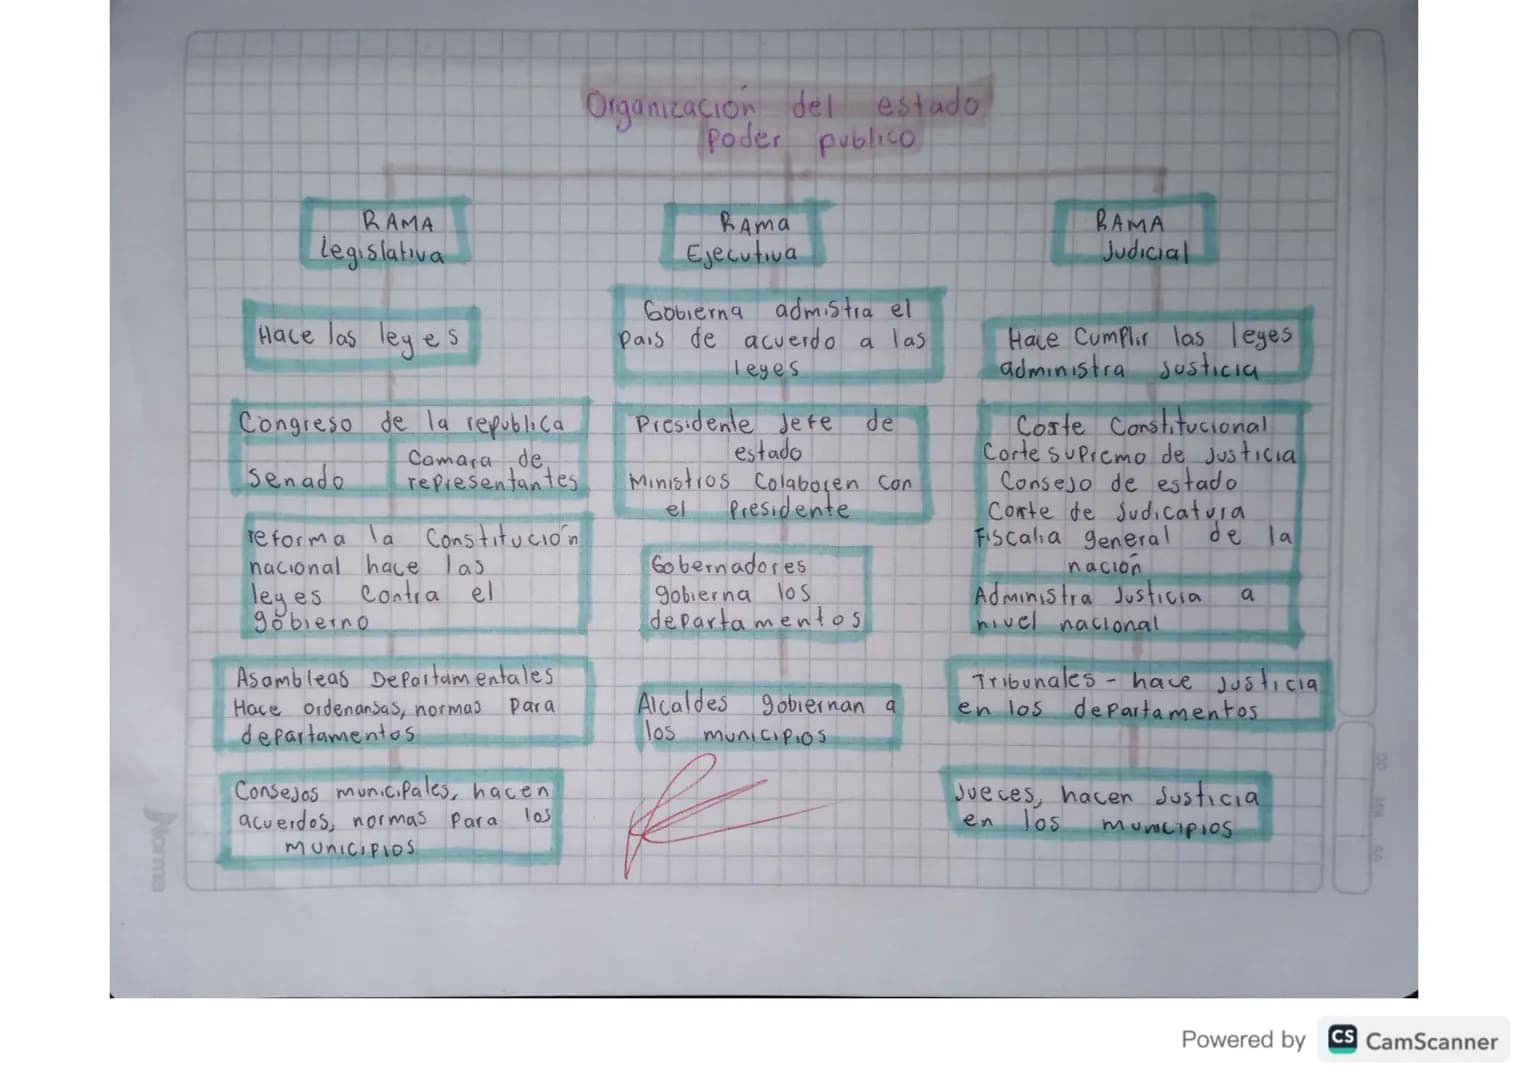 Organización del estado
Poder publico
RAMA
Legislativa
Hace las leyes
Congreso de la republica
Senado
Camara de
representantes
reforma la Constitución
nacional hace las
leyes Contra el
gobierno
Asambleas Departamentales
Hace ordenansas, normas Para
departamentos
Consejos municipales, hacen
acuerdos, normas Para los
municipios
RAMA
Ejecutiva
Gobierna admistra el
Pais de acuerdo a las
leyes
Presidente Jefe de
estado
Ministros Colaboren con
el Presidente
Gobernadores
gobierna los
departamentos
Alcaldes gobiernan a
los municipios
RAMA
Judicial
Hace Cumplir las leyes
administra Justicia
Corte Constitucional
Corte supremo de Justicia
Consejo de estado
Corte de Judicatura
Fiscalia general de la
nación
Administra Justicia a
nivel nacional
Tribunales - hace Justicia
en los departamentos
Jueces, hacen Justicia
en los municipios
Norma
DD MM AA
Powered by CS CamScanner